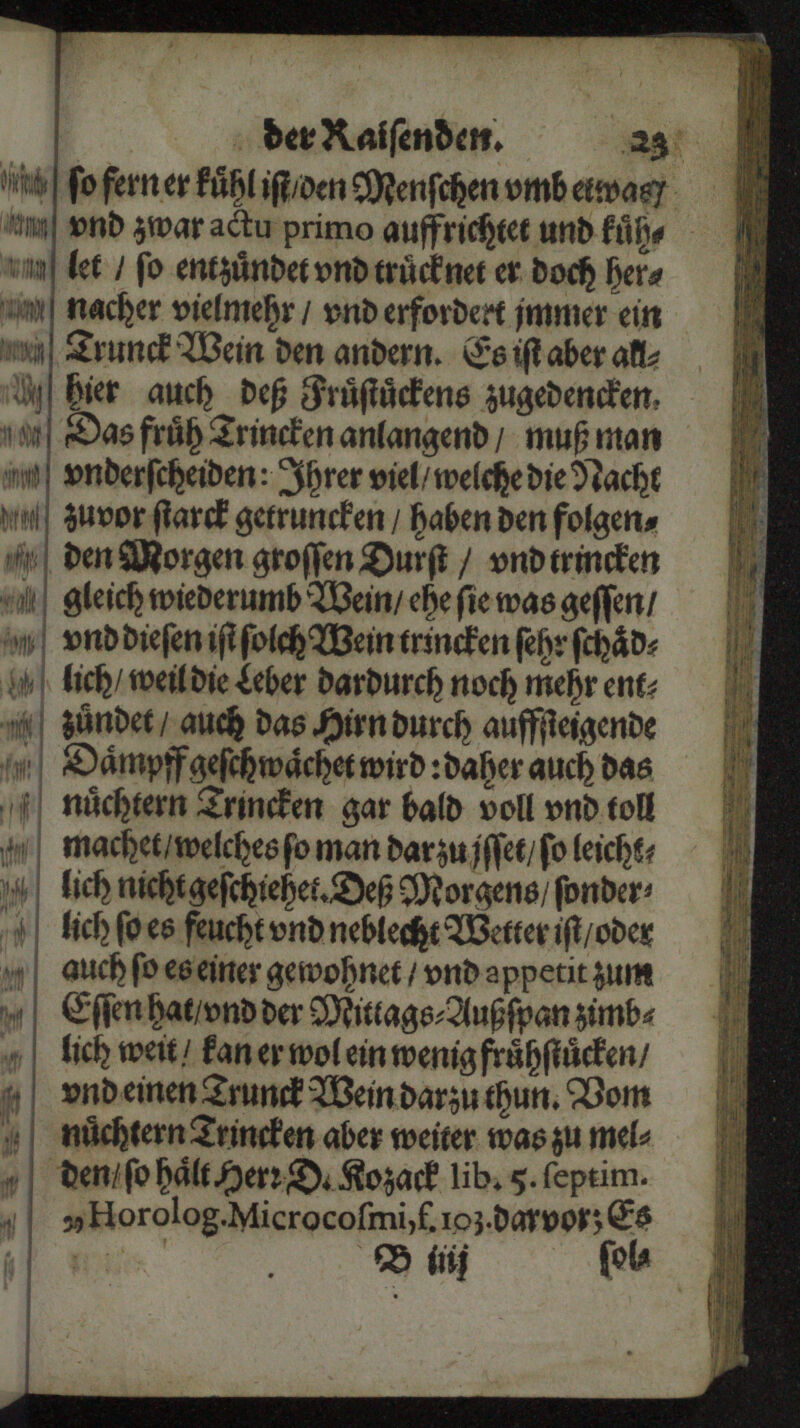 der Raiſenden. 23
ſo fern er kuͤhl iſt/den Menſchen vmb etwas/
vnd zwar actu primo auffrichtet und kuͤh⸗
let / ſo entzuͤndet vnd truͤcknet er doch her⸗
nacher vielmehr / vnd erfordert jmmer ein
Trunck Wein den andern. Es iſt aber all⸗
hier auch deß Fruͤſtuͤckens zugedencken.
Das fruͤh Trincken anlangend / muß man
vnderſcheiden: Ihrer viel/welche die Nacht
zuvor ſtarck getruncken / haben den folgen⸗
den Morgen groſſen Durſt / vnd trincken
gleich wiederumb Wein/ ehe ſie was geſſen/
vnd dieſen iſt ſolch Wein trincken ſehr ſchaͤd⸗
lich/ weil die Leber dardurch noch mehr ent⸗
zuͤndet / auch das Hirn durch auffſteigende
Daͤmpff geſchwaͤchet wird : daher auch das
nuͤchtern Trincken gar bald voll vnd toll
machet/welches ſo man darzu jſſet/ ſo leicht⸗
lich nicht geſchiehet. Deß Morgens/ ſonder⸗
lich ſo es feucht vnd neblecht Wetter iſt/oder
auch ſo es einer gewohnet / vnd appetit zum
Eſſen hat/vnd der Mittags⸗Außſpan zimb⸗
lich weit / kan er wol ein wenig fruͤhſtuͤcken/
vnd einen Trunck Wein darzu thun. Vom
nuͤchtern Trincken aber weiter was zu mel⸗
den/ ſo haͤlt Herꝛ D. Kozack lib. 5. ſeptim.
„Horolog. Microcoſmi, f. 103. darvor; Es
B iiij ſol⸗